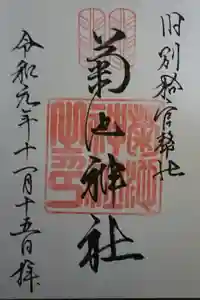 旧別格官幣社
菊池神社
令和元年十一月十五日拝